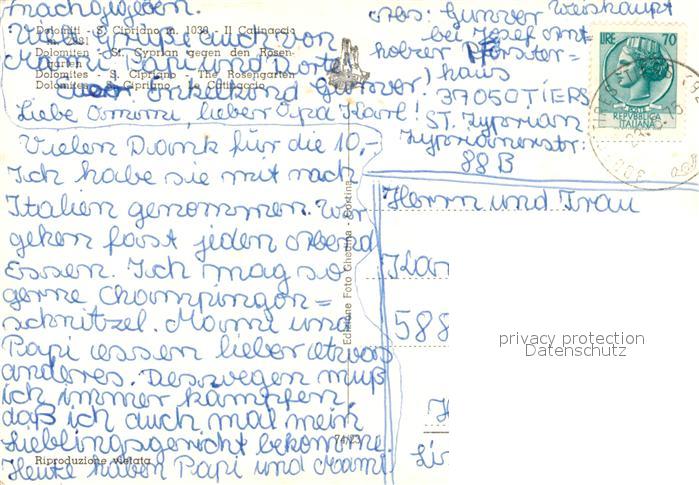 nachgegeben.
Viele Grüße auch von
Mami, Papi und Dorte
Euer Enkelkind Gunver.
Dolomiti - S. Cipriano m. 1038 - Il Catinaccio
m. 2981
Dolomiten - St. Cyprian gegen den Rosen-
garten
Dolomites - S. Cipriano - The Rosengarten
Dolomites - S. Cipriano - Le Catinaccio
Liebe Omimi, lieber Opa Karl!
Vielen Dank für die 10,-
Ich habe sie mit nach
Italien genommen. Wir
gehen fast jeden Abend
Essen. Ich mag so
gerne Champingon=
schnitzel. Mami und
Papi essen lieber etwas
anderes. Deswegen muß
ich immer kämpfen,
daß ich auch mal mein
Lieblingsgericht bekomme.
Heute haben Papi und Mami
Riproduzione vietata
74/23
Edizione Foto Ghedina - Cortina
Abs: Gunver Weishaupt
bei Josef
Pförster=
haus
37050 TIERS
ST. Zyprian
Zyprianerstr.
88 B
LIRE 70
REPUBBLICA
ITALIANA
Herrn und Frau
Kar
588
privacy protection
Datenschutz